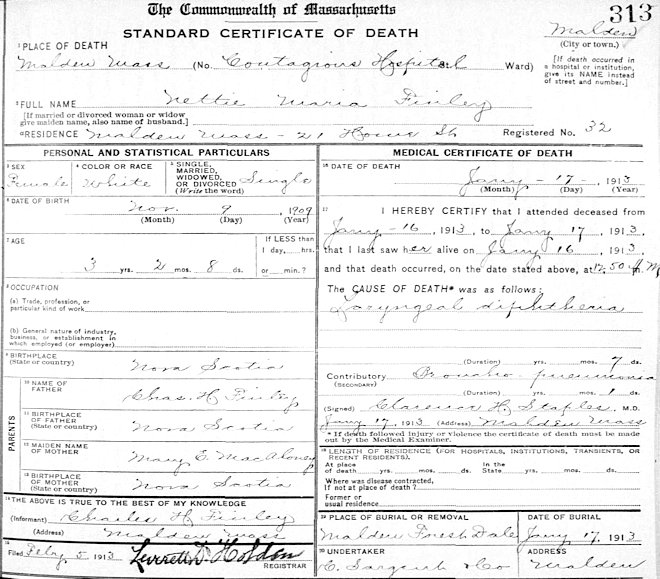 The Commonwealth of Massachusetts
313
STANDARD CERTIFICATE OF DEATH
Malden
(City or town.)
1 PLACE OF DEATH
Malden Mass (No. Contagious Hospital St. Ward)
[If death occurred in a hospital or institution, give its NAME instead of street and number.]
2 FULL NAME Nettie Maria Finley
[If married or divorced woman or widow give maiden name, also name of husband.]
RESIDENCE Malden Mass - 21 St Registered No. 32
PERSONAL AND STATISTICAL PARTICULARS
3 SEX
Female
4 COLOR OR RACE
White
5 SINGLE, MARRIED, WIDOWED, OR DIVORCED (Write the word)
Single
6 DATE OF BIRTH
Nov. 9, 1909
(Month) (Day) (Year)
7 AGE
3 yrs. 2 mos. 8 ds.
If LESS than
1 day, hrs.
or min.?
8 OCCUPATION
(a) Trade, profession, or
particular kind of work
(b) General nature of industry,
business, or establishment in
which employed (or employer)
9 BIRTHPLACE
(State or country) Nova Scotia
PARENTS
10 NAME OF
FATHER Chas. H Finley
11 BIRTHPLACE
OF FATHER
(State or country) Nova Scotia
12 MAIDEN NAME
OF MOTHER Mary E. MacAloney
13 BIRTHPLACE
OF MOTHER
(State or country) Nova Scotia
14 THE ABOVE IS TRUE TO THE BEST OF MY KNOWLEDGE
(Informant) Charles H Finley
(Address) Malden Mass
15
Filed Feby 5 1913 Leverett D. Holden
REGISTRAR
MEDICAL CERTIFICATE OF DEATH
16 DATE OF DEATH
Jany - 17 - , 1913
(Month) (Day) (Year)
17 I HEREBY CERTIFY that I attended deceased from
Jany - 16, 1913, to Jany 17, 1913,
that I last saw her alive on Jany 16, 1913,
and that death occurred, on the date stated above, at 12.50 M
The CAUSE OF DEATH* was as follows:
Laryngeal diphtheria
(Duration) yrs. mos. 7 ds.
Contributory Broncho-pneumonia
(SECONDARY)
(Duration) yrs. mos. 1 ds.
(Signed) Clarence H. Staples, M.D.
Jany 17, 1913 (Address) Malden Mass
* If death followed Injury or Violence the certificate of death must be made
out by the Medical Examiner.
18 LENGTH OF RESIDENCE (FOR HOSPITALS, INSTITUTIONS, TRANSIENTS, OR
RECENT RESIDENTS).
At place of death yrs. mos. ds. In the State yrs. mos. ds.
Where was disease contracted,
If not at place of death?
Former or
usual residence
19 PLACE OF BURIAL OR REMOVAL
Malden Forest Dale
DATE OF BURIAL
Jany 17, 1913
20 UNDERTAKER
C. Sargent & Co
ADDRESS
Malden